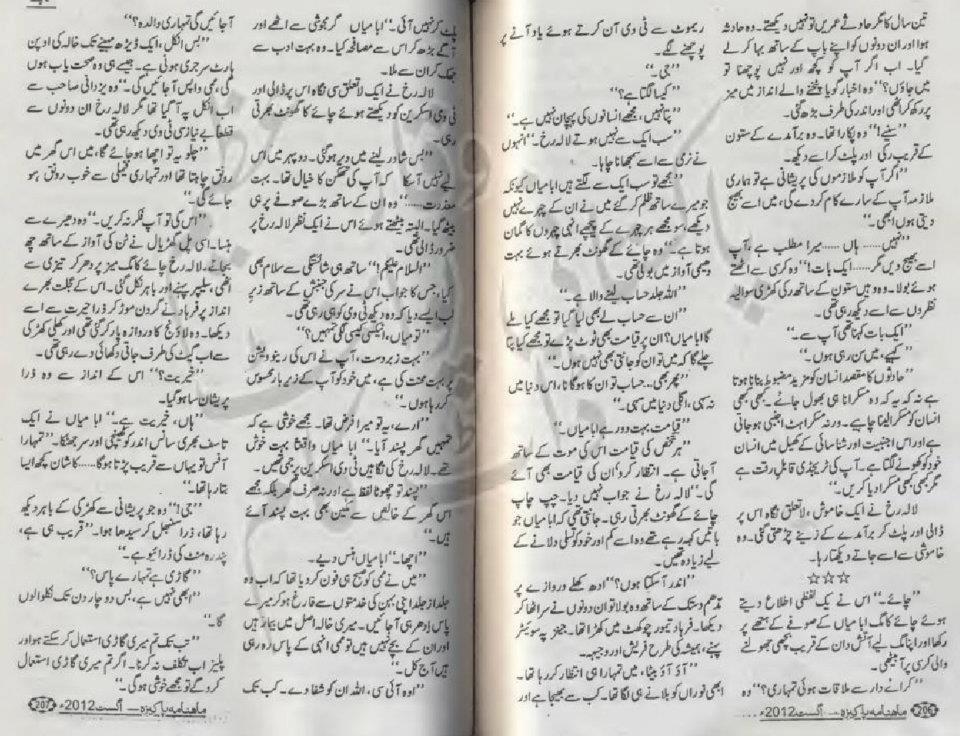 تین سال کا مگر حادثے عمریں تو نہیں دیکھتے۔ وہ حادثہ
ہوا اور ان دونوں کو اپنے باپ کے ساتھ بہا کر لے
گیا۔ اب اگر آپ کو کچھ اور نہیں پوچھنا تو
میں جاؤں؟“ وہ اخبار کو پٹخنے والے انداز میں میز
پر رکھ کر اٹھی اور اندر کی طرف بڑھ گئی۔
”سنیے!“ وہ پکارا تھا۔ وہ برآمدے کے ستون
کے قریب رکی اور پلٹ کر اسے دیکھا۔
”اگر آپ کو ملازموں کی پریشانی ہے تو ہماری
ملازمہ آپ کے سارے کام کر دے گی، میں اسے بھیج
دیتی ہوں ابھی۔“
”نہیں...... ہاں ...... میرا مطلب ہے، آپ
اسے بھیج دیں مگر...... ایک بات!“ وہ کرسی سے اٹھتے
ہوئے بولا۔ وہ وہیں ستون کے ساتھ رکی کھڑی سوالیہ
نظروں سے اسے دیکھ رہی تھی۔
”ایک بات کہنا تھی آپ سے۔“
”کہیے، میں سن رہی ہوں۔“
”حادثوں کا مقصد انسان کو مزید مضبوط بنانا ہوتا
ہے نہ کہ یہ کہ وہ مسکرانا ہی بھول جائے۔ کبھی کبھی
انسان کو مسکرا لینا چاہیے۔ ورنہ مسکراہٹ اجنبی ہو جاتی
ہے اور اس اجنبیت اور شناسائی کے کھیل میں انسان
خود کو کھونے لگتا ہے۔ آپ کی ٹریجڈی قابلِ رقت ہے
مگر کبھی کبھی مسکرا دیا کریں۔“
لالہ رخ نے ایک خاموش، لاتعلق نگاہ اس پر
ڈالی اور پلٹ کر برآمدے کے زینے چڑھتی گئی۔ وہ
خاموشی سے اسے جاتے دیکھتا رہا۔
☆☆☆
”چائے۔“ اس نے یک لفظی اطلاع دیتے
ہوئے چائے کا مگ ابا میاں کے صوفے کے ہتھے پر
رکھا اور اپنا مگ لیے آتش دان کے قریب بچھی جھولنے
والی کرسی پر آ بیٹھی۔
”کرائے دار سے ملاقات ہوئی تمہاری؟“ وہ
ریموٹ سے ٹی وی آن کرتے ہوئے یاد آنے پر
پوچھنے لگے۔
”جی۔“
”کیسا لگتا ہے؟“
”پتا نہیں، مجھے انسانوں کی پہچان نہیں ہے۔“
”سب ایک سے نہیں ہوتے لالہ رخ۔“ انہوں
نے نرمی سے اسے سمجھانا چاہا۔
”مجھے تو سب ایک سے لگتے ہیں ابا میاں کیونکہ
جو میرے ساتھ ظلم کر گئے میں نے ان کے چہرے نہیں
دیکھے، سو مجھے ہر چہرے کے پیچھے انہی چہروں کا گمان
ہوتا ہے۔“ وہ چائے کے گھونٹ بھرتے ہوئے بہت
دھیمی آواز میں بولی تھی۔
”اللہ جلد حساب لینے والا ہے۔“
”ان سے حساب لے بھی لیا گیا تو مجھے کیا ملے
گا ابا میاں؟ ان پر قیامت بھی ٹوٹ پڑے تو مجھے کیا پتا
چلے گا کہ میں تو ان کو جانتی بھی نہیں ہوں۔“
”پھر بھی... حساب تو ان کا ہوگا نا، اس دنیا میں
نہ سہی، اگلی دنیا میں سہی۔“
”قیامت بہت دور ہے ابا میاں۔“
”ہر شخص کی قیامت اس کی موت کے ساتھ
آ جاتی ہے۔ انتظار کرو ان کی قیامت بھی آئے
گی۔“ لالہ رخ نے جواب نہیں دیا۔ چپ چاپ
چائے کے گھونٹ بھرتی رہی۔ جانتی تھی کہ ابا میاں جو
باتیں کہہ رہے تھے وہ اسے کم اور خود کو تسلی دلانے کے
لیے زیادہ تھیں۔
”اندر آ سکتا ہوں؟“ ادھ کھلے دروازے پر
مدھم دستک کے ساتھ وہ بولا تو ان دونوں نے سر اٹھا کر
دیکھا۔ فرہاد تیمور چوکھٹ میں کھڑا تھا۔ جینز پہ سویٹر
پہنے، ہمیشہ کی طرح فریش اور وجیہہ۔
”آؤ آؤ بیٹا، میں تمہارا ہی انتظار کر رہا تھا۔
ابھی نوراں کو بلانے ہی لگا تھا۔ کب سے بھیجا ہے اور
206 ماہنامہ پاکیزہ — اگست 2012ء
پلٹ کر نہیں آئی۔“ ابا میاں گرمجوشی سے اٹھے اور
آگے بڑھ کر اس سے مصافحہ کیا۔ وہ بہت ادب سے
جھک کر ان سے ملا۔
لالہ رخ نے ایک لاتعلق سی نگاہ اس پر ڈالی اور
ٹی وی اسکرین کو دیکھتے ہوئے چائے کا گھونٹ بھرتی
رہی۔
”بس شاور لینے میں دیر ہو گئی۔ دوپہر میں اس
لیے نہیں آ سکا کہ آپ کی تھکن کا خیال تھا۔ بہت
معذرت......“ وہ ان کے ساتھ بڑے صوفے پر ہی
بیٹھ گیا۔ البتہ بیٹھتے ہوئے اس نے ایک نظر لالہ رخ پر
ضرور ڈالی تھی۔
”السلام علیکم!“ ساتھ ہی شائستگی سے سلام بھی
کیا، جس کا جواب اس نے سر کی جنبش کے ساتھ زیرِ
لب ایسے دیا کہ وہ دیکھ ٹی وی کو ہی رہی تھی۔
”تو میاں، انیکسی کیسی لگی تمہیں؟“
”بہت زبردست، آپ نے اس کی رینوویشن
پر بہت محنت کی ہے، میں خود کو آپ کے زیرِ بار محسوس
کر رہا ہوں۔“
”ارے، یہ تو میرا فرض تھا۔ مجھے خوشی ہے کہ
تمہیں گھر پسند آیا۔“ ابا میاں واقعتاً بہت خوش
تھے۔ لالہ رخ کی نگاہیں ٹی وی اسکرین پر جمی تھیں۔
”پسند تو چھوٹا لفظ ہے اور نہ صرف گھر بلکہ مجھے
اس گھر کے خالص سے مکین بھی بہت پسند آئے
ہیں۔“
”اچھا۔“ ابا میاں ہنس دیے۔
”میں نے ممی کو صبح ہی فون کر دیا تھا کہ اب وہ
جلد از جلد اپنی بہن کی خدمتوں سے فارغ ہو کر میرے
پاس ادھر ہی آ جائیں۔ میری خالہ اصل میں بیمار ہیں
اور ان کے بچے نہیں ہیں تو ممی انہی کے پاس رہ رہی
ہیں آج کل۔“
”اوہ آئی سی، اللہ ان کو شفا دے۔ کب تک
آ جائیں گی تمہاری والدہ؟“
”بس انکل، ایک ڈیڑھ مہینے تک خالہ کی اوپن
ہارٹ سرجری ہونی ہے۔ جیسے ہی وہ صحت یاب ہوں
گی، ممی واپس آ جائیں گی۔“ وہ یزدانی صاحب سے
اب انکل پہ آ گیا تھا مگر لالہ رخ ان دونوں سے
قطعاً بے نیاز سی ٹی وی دیکھ رہی تھی۔
”چلو یہ تو اچھا ہو جائے گا، میں اس گھر میں
رونق چاہتا تھا اور تمہاری فیملی سے خوب رونق ہو
جائے گی۔“
”اس کی تو آپ فکر نہ کریں۔“ وہ دھیرے سے
ہنسا۔ اسی پل گھڑیال نے ٹن کی آواز کے ساتھ چھ
بجائے۔ لالہ رخ چائے کا مگ میز پر دھر کر تیزی سے
اٹھی، سلیپر پہنے اور باہر نکل گئی۔ اس کے عجلت بھرے
انداز پر فرہاد نے گردن موڑ کر ذرا حیرت سے اسے
دیکھا۔ وہ لاؤنج کا دروازہ پار کر گئی تھی اور کھلی کھڑکی
سے اب گیٹ کی طرف جاتی دکھائی دے رہی تھی۔
”خیریت؟“ اس کے انداز سے وہ ذرا
پریشان سا ہو گیا۔
”ہاں، خیریت ہے۔“ ابا میاں نے ایک
تاسف بھری سانس اندر کو کھینچی اور سر جھٹکا۔ ”تمہارا
آفس تو یہاں سے قریب پڑتا ہوگا...... کاشان کچھ ایسا
بتا رہا تھا۔“
”جی!“ وہ جو پریشانی سے کھڑکی کے باہر دیکھ
رہا تھا، ذرا سنبھل کر سیدھا ہوا۔ ”قریب ہی ہے،
پندرہ منٹ کی ڈرائیو ہے۔“
”گاڑی ہے تمہارے پاس؟“
”ابھی نہیں ہے، بس دو چار دن تک نکلوالوں
گا۔“
”تب تک تم میری گاڑی استعمال کر سکتے ہو اور
پلیز اب تکلف نہ کرنا۔ اگر تم میری گاڑی استعمال
کرو گے تو مجھے خوشی ہوگی۔“
207 ماہنامہ پاکیزہ — اگست 2012ء